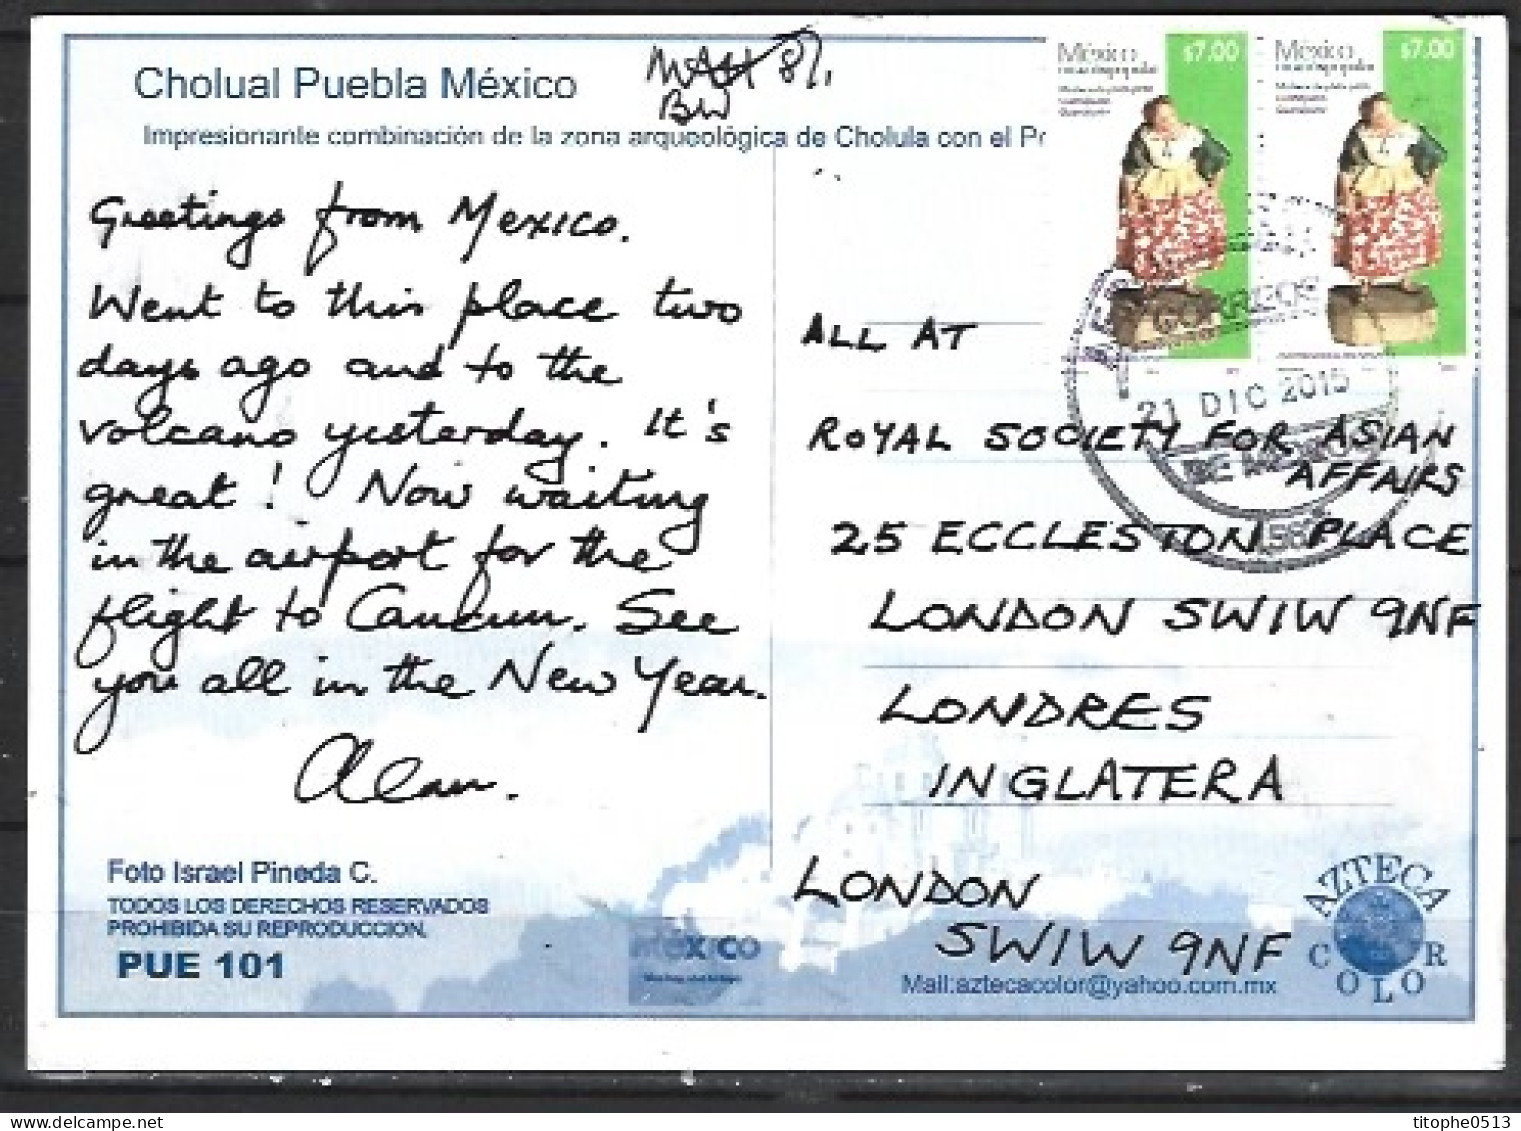 Cholual Puebla México
Impresionante combinación de la zona arqueológica de Cholula con el
8/1
BW
México
$7.00
México
$7.00
Greetings from Mexico.
Went to this place two
days ago and to the
volcano yesterday. It's
great! Now waiting
in the airport for the
flight to Cancun. See
you all in the New Year.
Alan.
ALL AT
ROYAL SOCIETY FOR ASIAN
AFFAIRS
25 ECCLESTON PLACE
LONDON SW1W 9NF
LONDRES
INGLATERA
LONDON
SW1W 9NF
21 DIC 2015
Foto Israel Pineda C.
TODOS LOS DERECHOS RESERVADOS
PROHIBIDA SU REPRODUCCION.
PUE 101
México
Mail:aztecacolor@yahoo.com.mx
AZTECA
COLOR
titophe0513